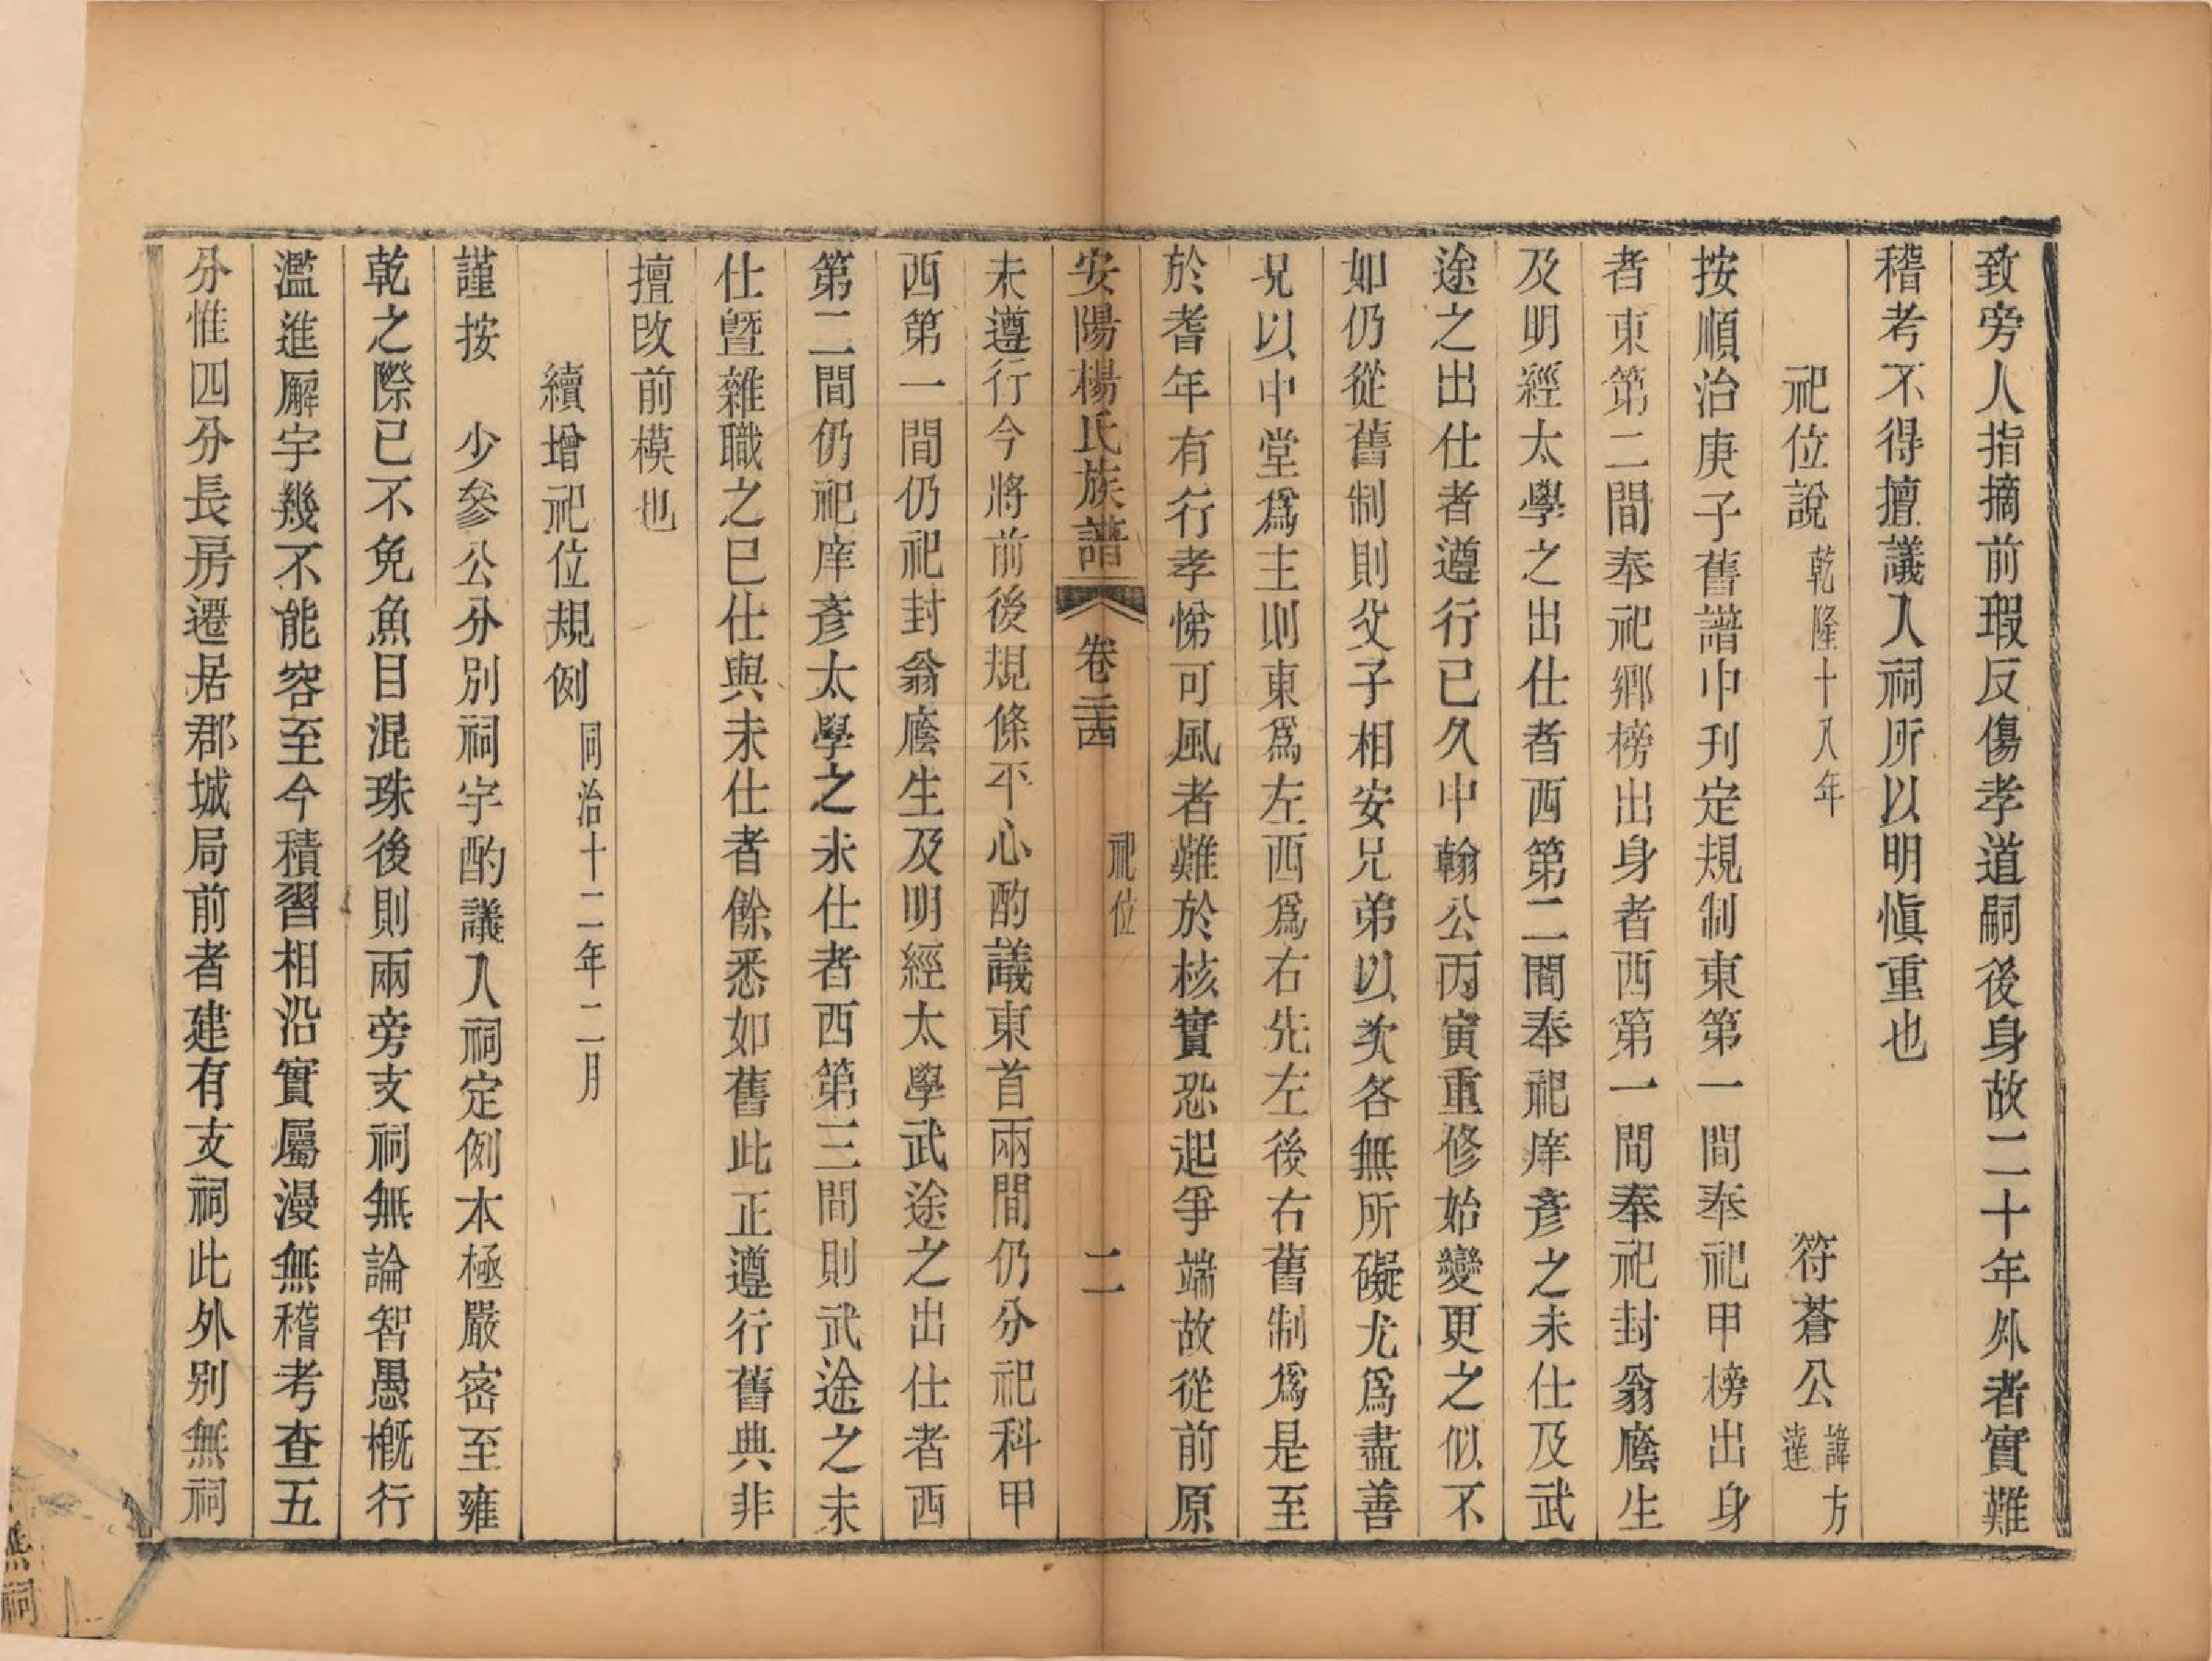 致旁人指摘前瑕反傷孝道嗣後身故二十年外者實難
稽考不得擅議入祠所以明慎重也
祀位說 乾隆十八年 符蒼公 諱方達
按順治庚子舊譜中刊定規制東第一間奉祀甲榜出身
者東第二間奉祀鄉榜出身者西第一間奉祀封翁廕生
及明經太學之出仕者西第二間奉祀庠彥之未仕及武
途之出仕者遵行已久中翰公丙寅重修始變更之似不
如仍從舊制則父子相安兄弟以次各無所礙尤爲盡善
况以中堂爲主則東爲左西爲右先左後右舊制爲是至
於耆年有行孝悌可風者難於核實恐起爭端故從前原
安陽楊氏族譜 卷二十四 祀位 二
未遵行今將前後規條平心酌議東首兩間仍分祀科甲
西第一間仍祀封翁廕生及明經太學武途之出仕者西
第二間仍祀庠彥太學之未仕者西第三間則武途之未
仕曁雜職之已仕與未仕者餘悉如舊此正遵行舊典非
擅改前模也
續增祀位規例 同治十二年二月
謹按 少參公分別祠宇酌議入祠定例本極嚴密至雍
乾之際已不免魚目混珠後則兩旁支祠無論智愚概行
濫進廨宇幾不能容至今積習相沿實屬漫無稽考查五
分惟四分長房遷居郡城局前者建有支祠此外別無祠
無祠